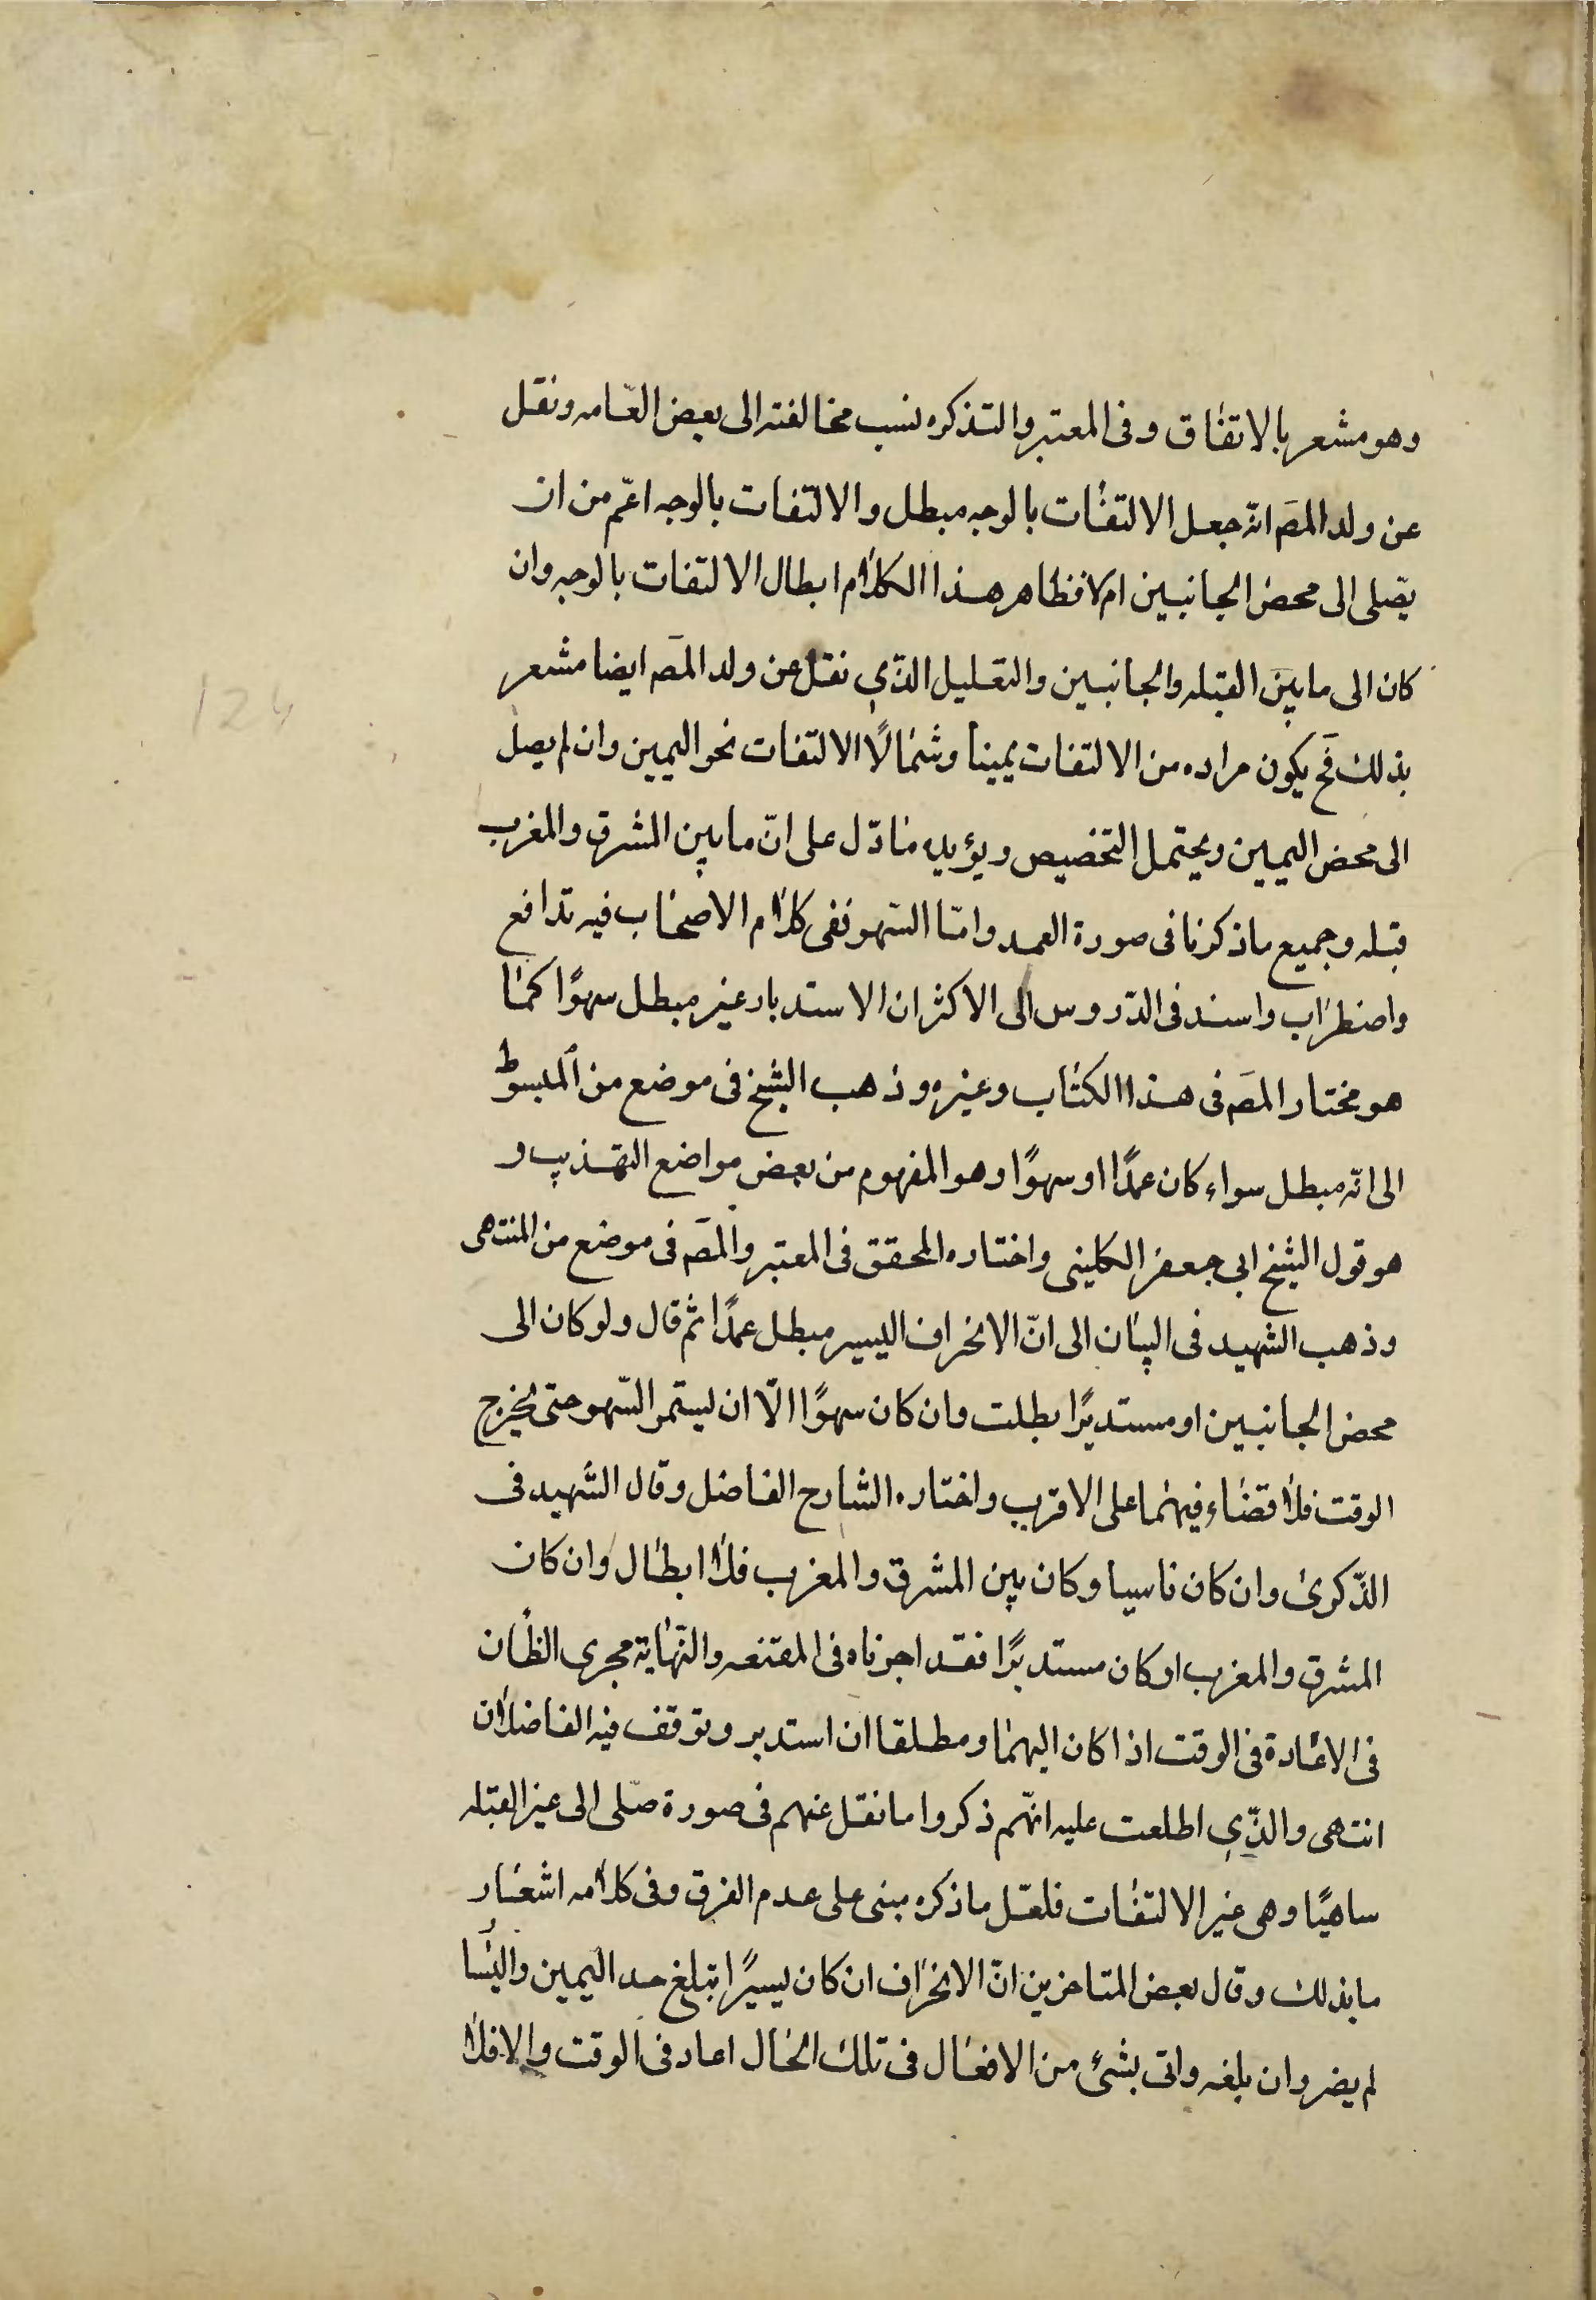 وهو مشعر بالاتفاق وفى المعتبر والتذكره نسب مخالفته الى بعض العّامه ونقل
عن ولد المصَ انّه جعل الالتفات بالوجه مبطل والالتفات بالوجه اعّم من ان
يصّلى الى محض الجانبين ام لا فظاهر هذا الكلام ابطال الالتفات بالوجه وان
كان الى ما بين القبله والجانبين والتعليل الذّي نقل عن ولد المصَ ايضا مشعر
بذلك فحَ يكون مراده من الالتفات يمينا وشمالًا الالتفات نحو اليمين وان لم يصل
الى محض اليمين ويحتمل التخصيص ويؤيده ما دّل على انّ ما بين المشرق والمغرب
قبله وجميع ما ذكرنا فى صورة العمد وامّا السّهو ففى كلام الاصحاب فيه تدافع
واضطراب واسند فى الدّروس الى الاكثر ان الاستدبار غير مبطل سهوًا كما
هو مختار المصَ فى هذا الكتاب وغيره وذهب الشيخ فى موضع من المبسوط
الى انّه مبطل سواء كان عمدًا او سهوًا وهو المفهوم من بعض مواضع التهذيب و
هو قول الشيخ ابى جعفر الكلينى واختاره المحقق فى المعتبر والمصَ فى موضع من المنتهى
وذهب الشهيد فى البيان الى انّ الانحراف اليسير مبطل عمدًا ثم قال ولو كان الى
محض الجانبين او مستديرًا بطلت وان كان سهوًا الّا ان يستمر السّهو حتى يخرج
الوقت فلا قضاء فيهما على الاقرب واختاره الشارح الفاضل وقال الشهيد فى
الذّكرى وان كان ناسيا وكان بين المشرق والمغرب فلا ابطال وان كان
المشرق والمغرب او كان مستدبرًا فقد اجرناه فى المقنعه والنّهاية مجرى الظان
فى الاعادة فى الوقت اذا كان اليهما ومطلقا ان استدبر وتوقف فيه الفاضلان
انتهى والذّي اطلعت عليه انّهم ذكروا ما نقل عنهم فى صورة صّلى الى غير القبله
ساهيًا وهى غير الالتفات فلعّل ما ذكره مبنى على عدم الفرق وفى كلامه اشعار
ما بذلك وقال بعض المتاخرين انّ الانحراف ان كان يسيرًا تبلغ حد اليمين واليسا
لم يضر وان بلغه واتى بشئ من الافعال فى تلك الحال اعاد فى الوقت والا فلا